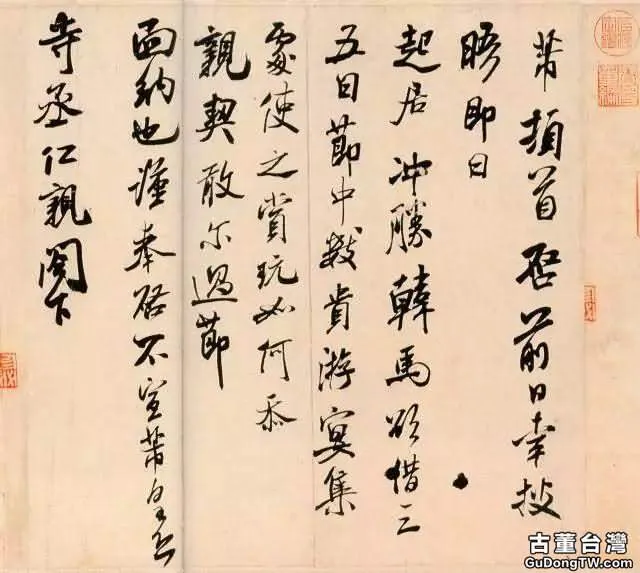 芾頓首啓前日幸披
晤即日
起居冲勝韓馬欲借三
五日節中数貴游宴集
處使之賞玩如何忝
親契敢尔過節
面納也謹奉啓不宣芾皇恐
寺丞仁親閣下
古董台灣
GuDongTW.com